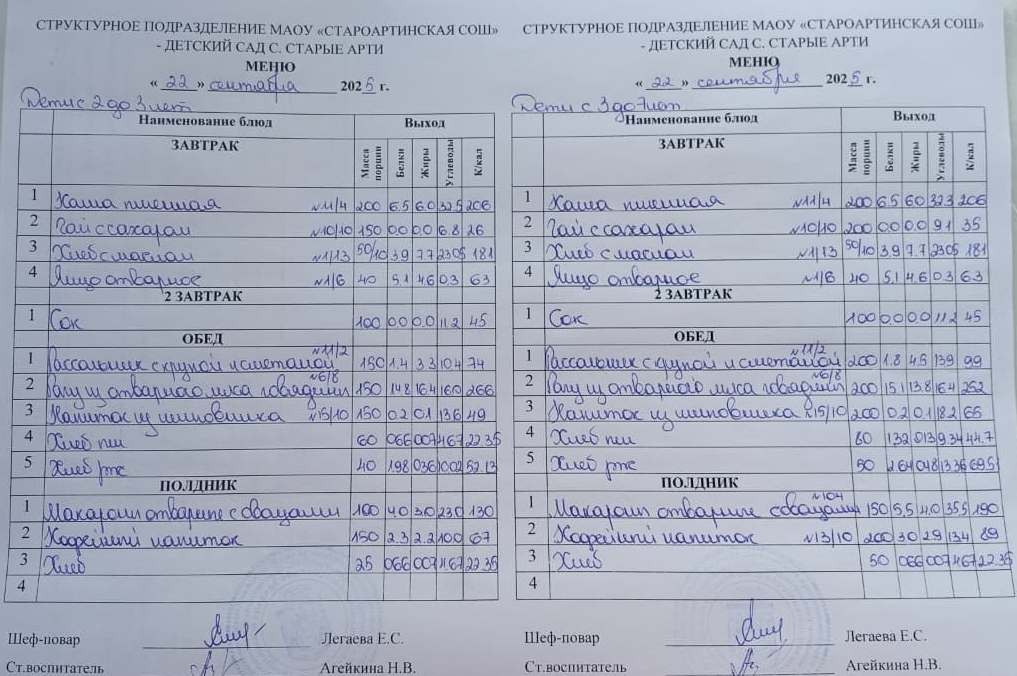 СТРУКТУРНОЕ ПОДРАЗДЕЛЕНИЕ МАОУ «СТАРОАРТИНСКАЯ СОШ»
- ДЕТСКИЙ САД С. СТАРЫЕ АРТИ
МЕНЮ
« 22 » сентября 2025 г.
Дети с 2 до 3 лет
Наименование блюд Выход
ЗАВТРАК Масса порции Белки Жиры Углеводы К/кал
1 Каша пшенная №11/4 200 6.5 6.0 32.5 206
2 Чай с сахаром №10/10 150 0.0 0.0 6.8 26
3 Хлеб с маслом №1/13 50/10 3.9 7.7 23.05 181
4 Яйцо отварное №1/6 40 5.1 4.6 0.3 63
2 ЗАВТРАК
1 Сок 100 0.0 0.0 11.2 45
ОБЕД
1 Рассольник с крупой и сметаной №11/2 150 1.4 3.3 10.4 74
2 Рагу из отварного мяса говядины №6/8 150 14.8 16.4 16.0 266
3 Напиток из шиповника №15/10 150 0.2 0.1 13.6 49
4 Хлеб пш 60 0.66 0.07 4.67 22.35
5 Хлеб рж 40 1.98 0.36 10.02 52.13
ПОЛДНИК
1 Макароны отварные с овощами 100 4.0 3.0 23.0 130
2 Кофейный напиток 150 2.3 2.2 10.0 67
3 Хлеб 25 0.66 0.07 4.67 22.35
4
Шеф-повар Легаева Е.С.
Ст.воспитатель Агейкина Н.В.
СТРУКТУРНОЕ ПОДРАЗДЕЛЕНИЕ МАОУ «СТАРОАРТИНСКАЯ СОШ»
- ДЕТСКИЙ САД С. СТАРЫЕ АРТИ
МЕНЮ
« 22 » сентября 2025 г.
Дети с 3 до 7 лет
Наименование блюд Выход
ЗАВТРАК Масса порции Белки Жиры Углеводы К/кал
1 Каша пшенная №11/4 200 6.5 6.0 32.3 206
2 Чай с сахаром №10/10 200 0.0 0.0 9.1 35
3 Хлеб с маслом №1/13 50/10 3.9 7.7 23.05 181
4 Яйцо отварное №1/6 40 5.1 4.6 0.3 63
2 ЗАВТРАК
1 Сок 100 0.0 0.0 11.2 45
ОБЕД
1 Рассольник с крупой и сметаной №11/2 200 1.8 4.5 13.9 99
2 Рагу из отварного мяса говядины №6/8 200 15.1 13.8 16.4 252
3 Напиток из шиповника №15/10 200 0.2 0.1 18.2 65
4 Хлеб пш 60 1.32 0.13 9.34 44.7
5 Хлеб рж 50 2.64 0.48 13.36 69.51
ПОЛДНИК
1 Макароны отварные с овощами №104 150 5.5 4.0 35.5 190
2 Кофейный напиток №13/10 200 3.0 2.9 13.4 89
3 Хлеб 50 0.66 0.07 4.67 22.35
4
Шеф-повар Легаева Е.С.
Ст.воспитатель Агейкина Н.В.